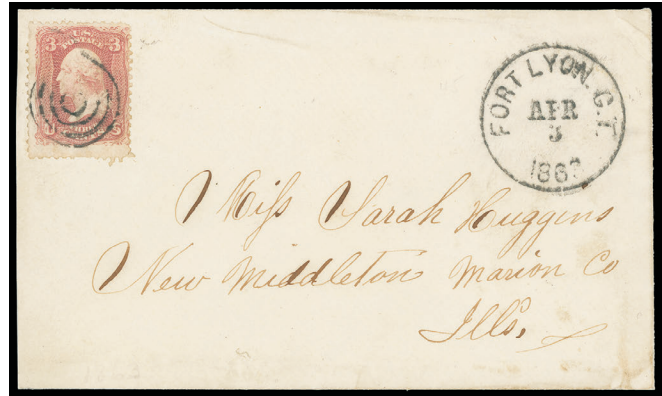 3 U.S. 3
POSTAGE
FORT LYON. C.T.
APR
3
186
Miss Sarah Huggins
New Middleton Marion Co
Ills,